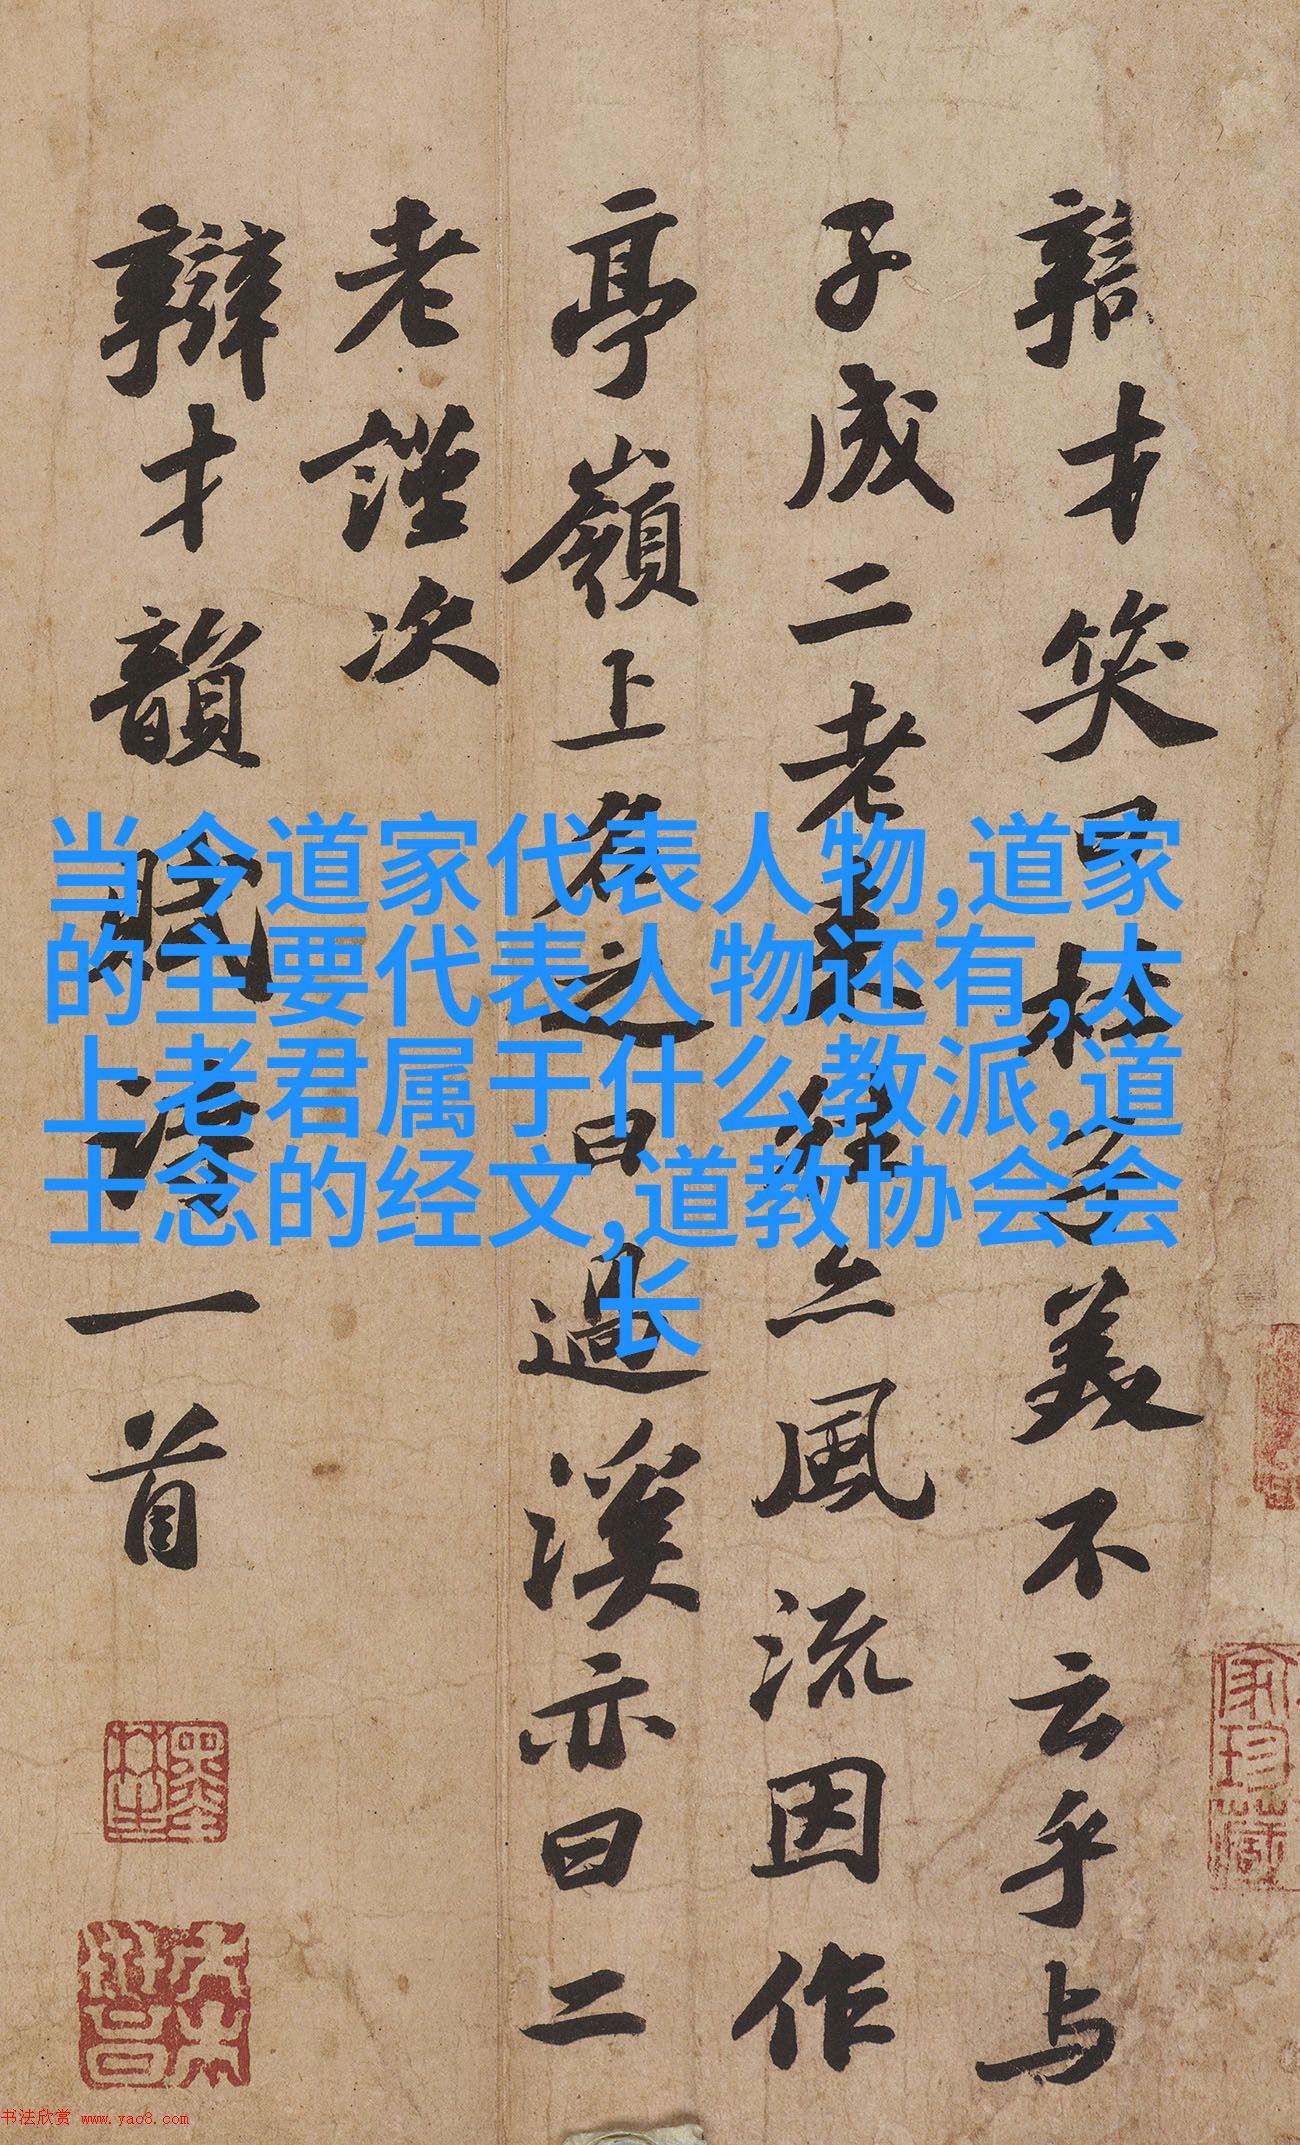 辯才笑曰杜子美不云乎与
子成二老来往亦風流因作
亭嶺上名之曰過溪亦曰二
老謹次
辯才韻賦詩一首
当今道家代表人物,道家
的主要代表人物还有,太
上老君属于什么教派,道
士念的经文,道教协会会
长
家珍藏
书法欣赏 www.yac8.com